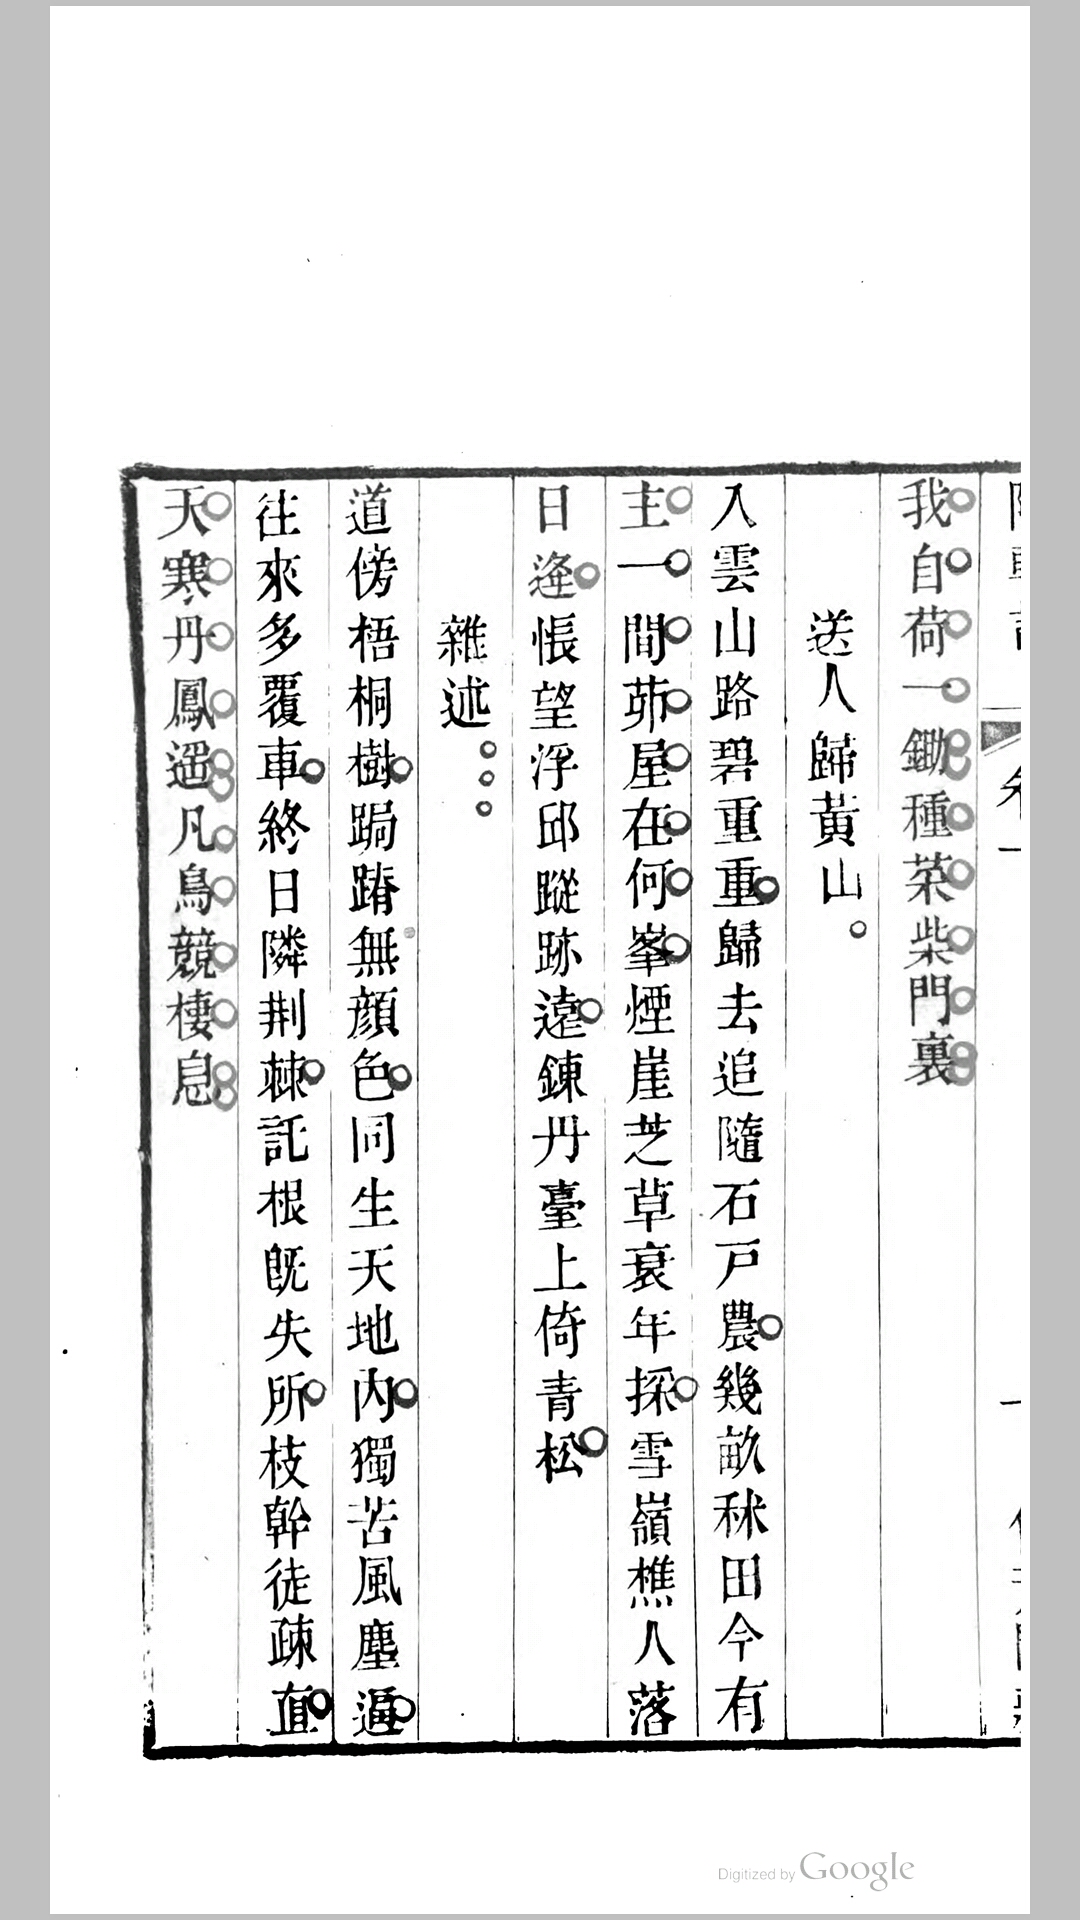 我自荷一鋤種菜柴門裏
送人歸黃山
入雲山路碧重重歸去追隨石戸農幾畝秫田今有
主一間茆屋在何峯煙崖芝草衰年採雪嶺樵人落
日逢悵望浮邱蹤跡遠鍊丹臺上倚青松
雜述
道傍梧桐樹跼蹐無顔色同生天地內獨苦風塵逼
往來多覆車終日隣荆棘託根旣失所枝幹徒疎直
天寒丹鳳遥凡鳥競棲息
Digitized by Google